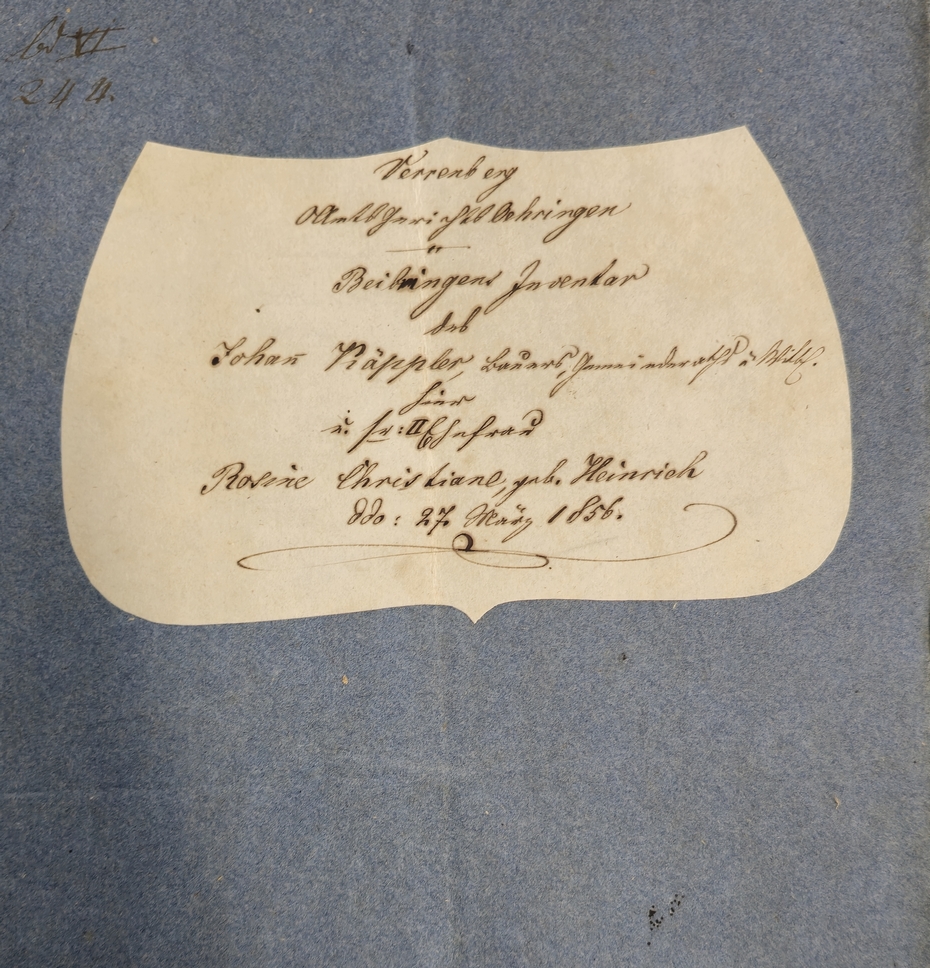 Bd VI
244.
Verrenberg
OAmtsgerichts Oehringen
"
Beibringens Inventar
des
Johan̅ Käppler, Bauers, Gemeinderaths u.
hier
u. sr: II Ehefrau
Rosine Christiane, geb. Heinrich
ddo: 27. März 1856.